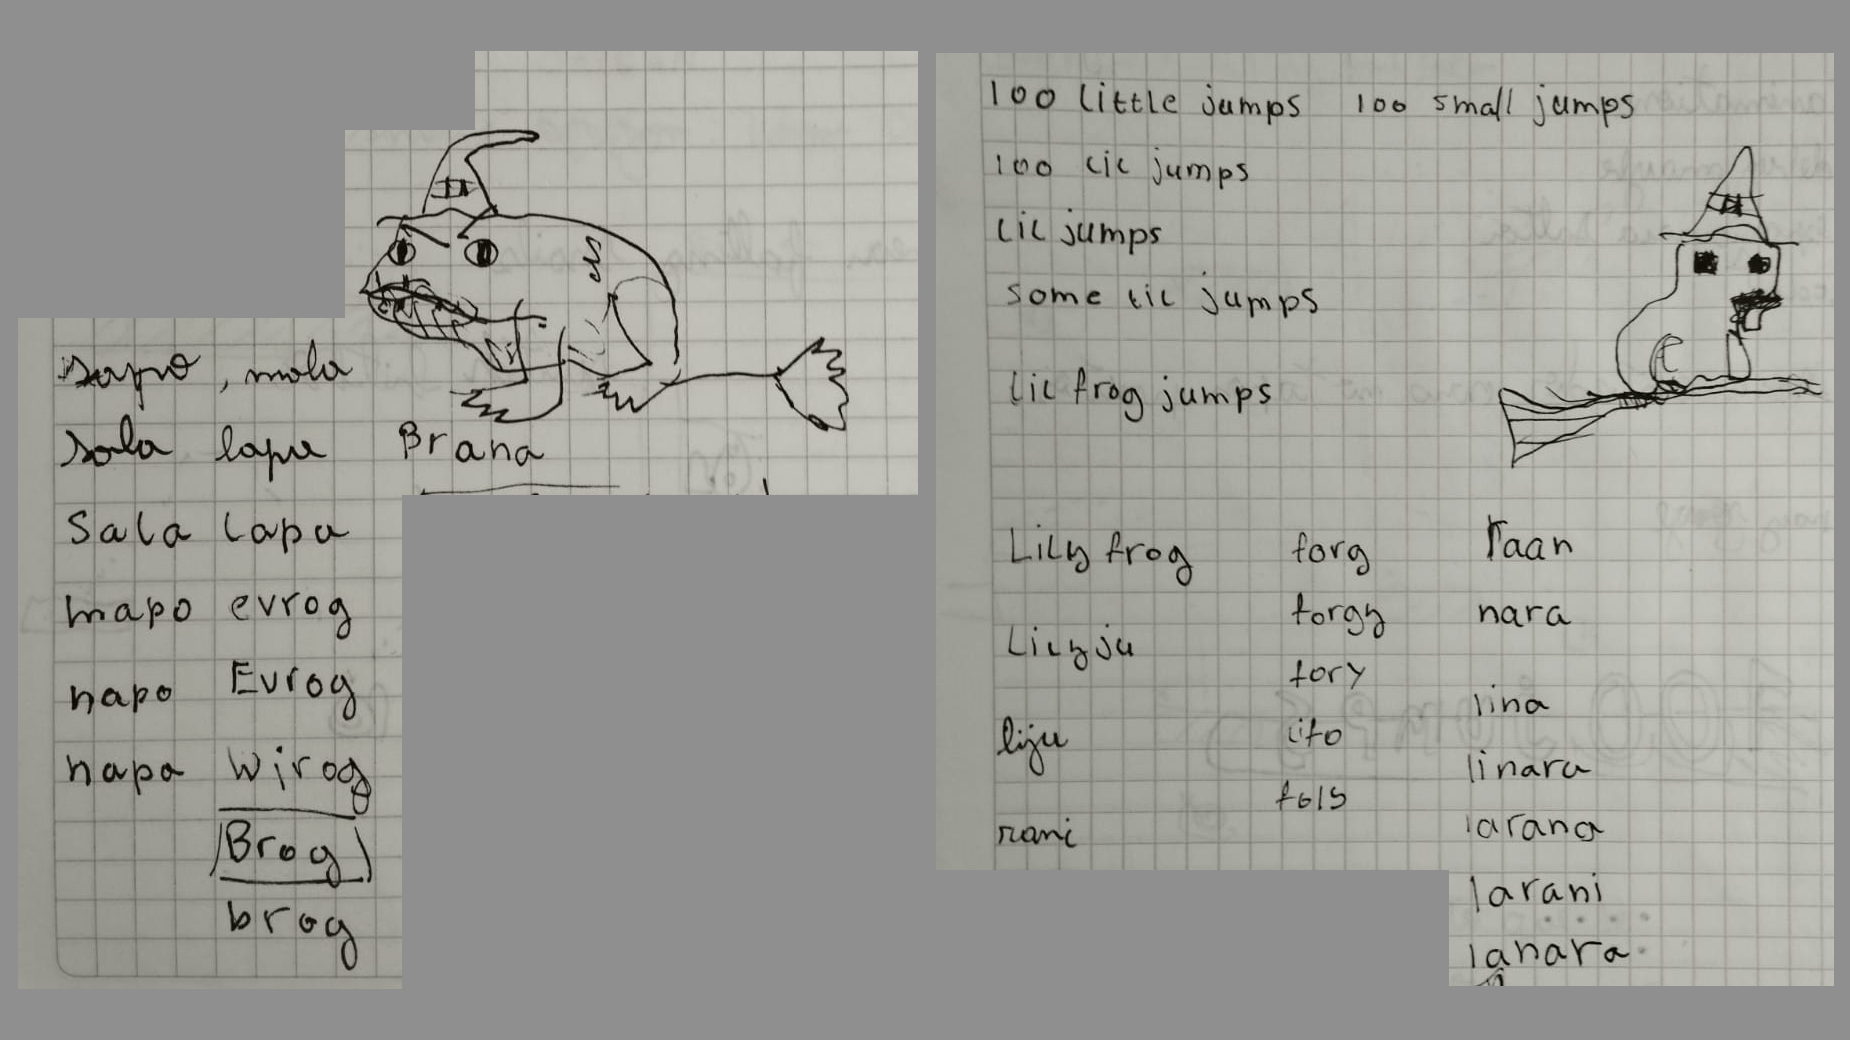 sapo, mala
sala lapa Brana
Sala Lapa
mapo evrog
napo Evrog
napa Wirog
Brog
brog
100 little jumps 100 small jumps
100 lil jumps
Lil jumps
some lil jumps
Lil frog jumps
Lily frog
Lilyju
liju
rani
forg
forgy
fory
lifo
foly
raan
nara
lina
linara
larana
larani
lanara